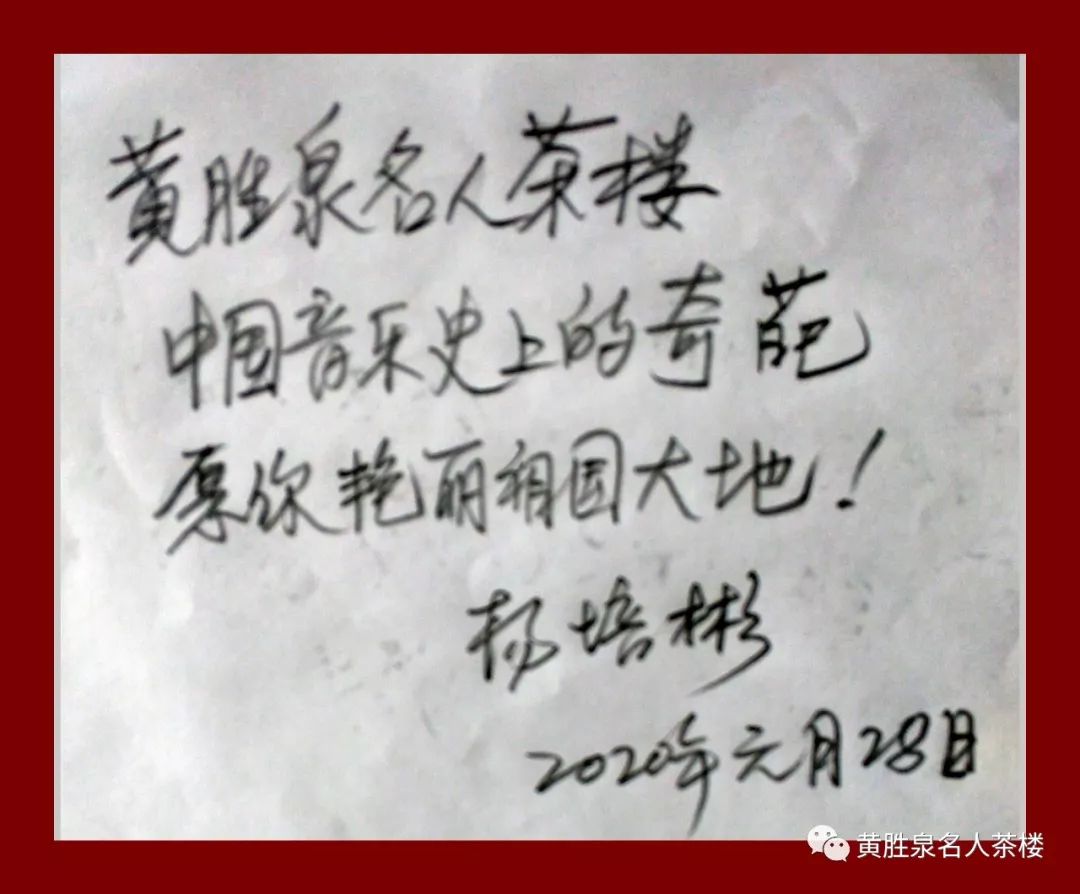 黄胜泉名人茶楼
中国音乐史上的奇葩
愿你艳丽祖国大地！
杨培彬
2020年元月28日
黄胜泉名人茶楼